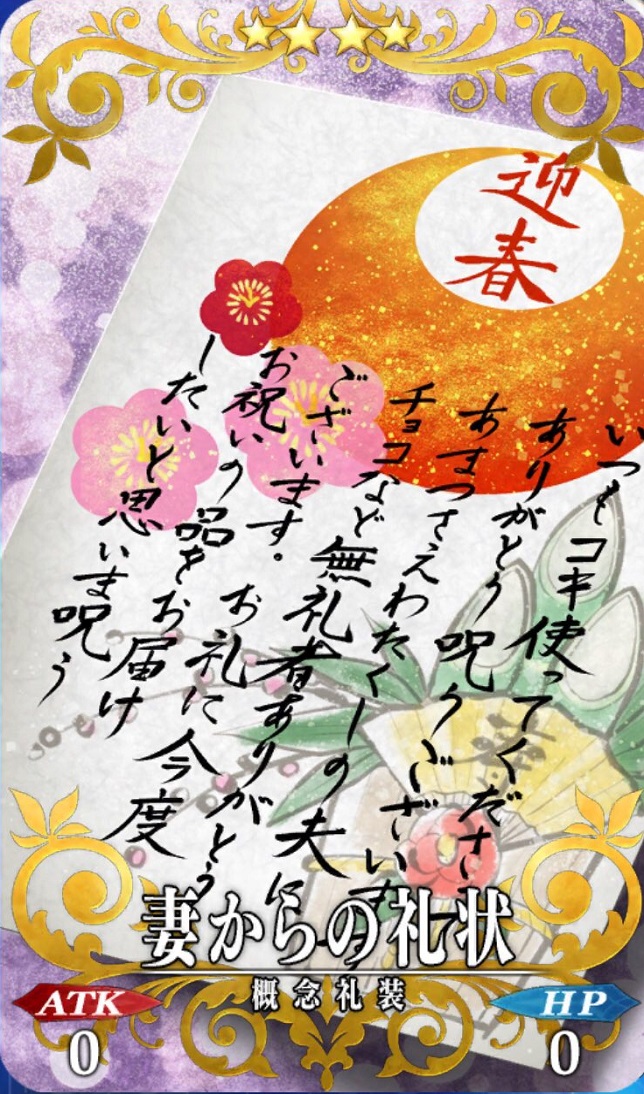 迎春
いつもコキ使ってくださ
ありがとう呪うございま
あまつさえわたくしの夫に
チョコなど無礼者ありがとう
ございます。お礼に今度
お祝いの品をお届け
したいと思いま呪う
妻からの礼状
概念礼装
ATK
0
HP
0